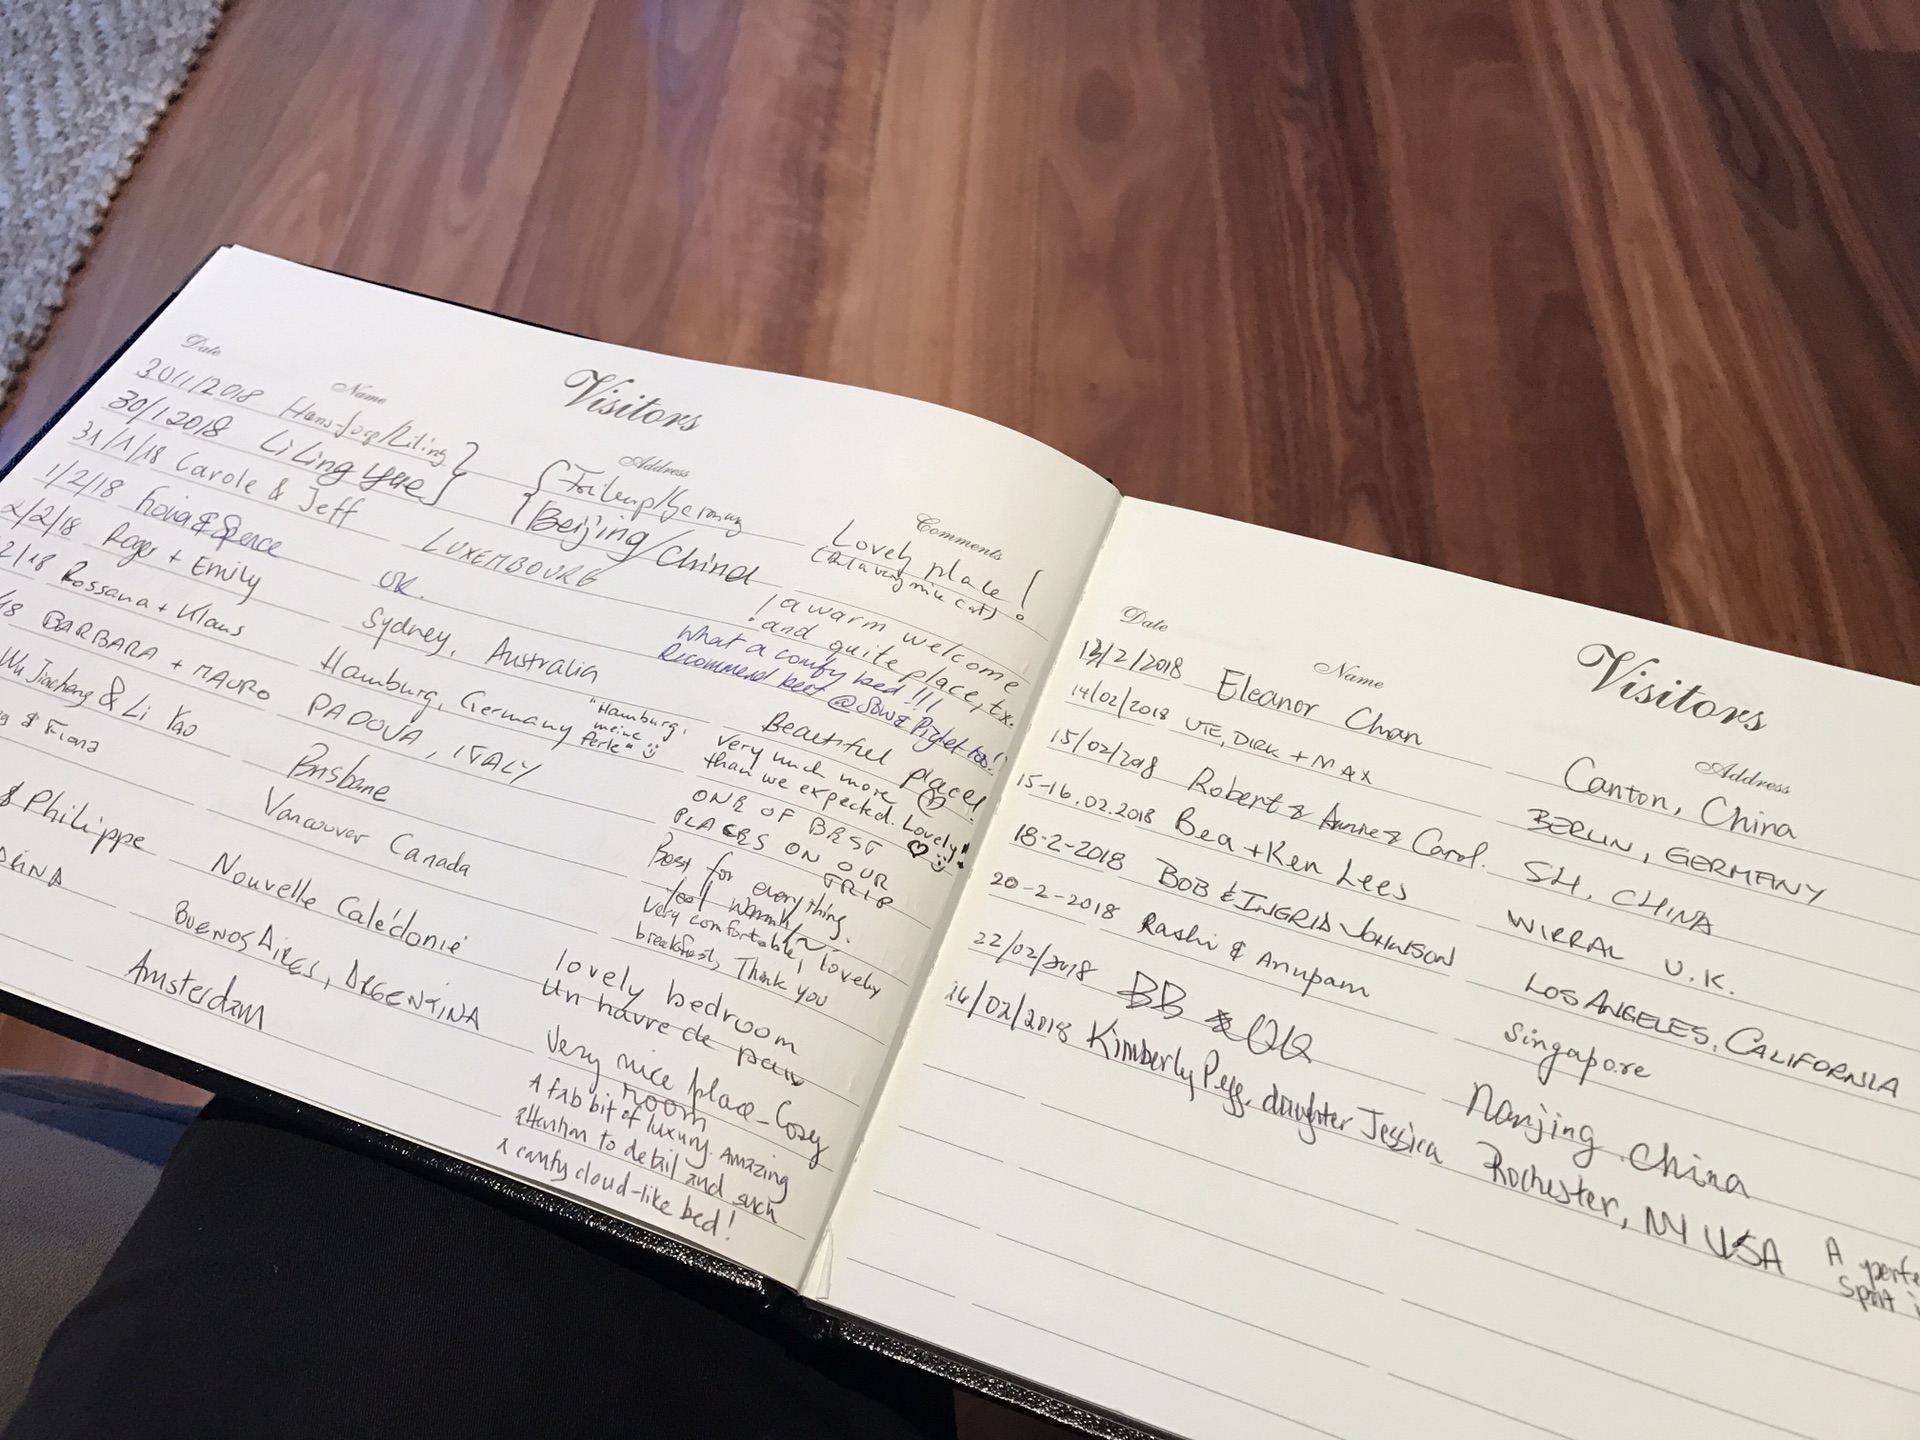 Visitors
Date Name Address Comments
30/1/2018 Hans-Jorg/Liling Germany Lovely place!
30/1 2018 Li Ling Yue Beijing/China
31/1/18 Carole & Jeff LUXEMBOURG ! a warm welcome
! and quite place, tx.
1/2/18 & Spence UK. What a comfy bed!!!
Recommend beef @ Sow & Piglet too!
2/2/18 Roger + Emily Sydney, Australia Beautiful place!
2/18 Rossana + Klaus Hamburg, Germany "Hamburg,
meine
Perle"
very much more
than we expected. Lovely!
18 BARBARA + MAURO PADOVA, ITALY ONE OF BEST
PLACES ON OUR
TRIP
Wu Jiacheng & Li Yao Brisbane Best for everything.
feel warm
& Fiona Vancouver Canada very comfortable, lovely
breakfast, Thank you
& Philippe Nouvelle Calédonie lovely bedroom
Un havre de paix
BUENOS AIRES, ARGENTINA Very nice place - Cosy
room
Amsterdam A fab bit of luxury. Amazing
attention to detail and such
a comfy cloud-like bed!
Visitors
Date Name Address
13/2/2018 Eleanor Chan Canton, China
14/02/2018 UTE, DIRK + MAX BERLIN, GERMANY
15/02/2018 Robert & Annie & Carol. SH, CHINA
15-16.02.2018 Bea + Ken Lees WIRRAL U.K.
18-2-2018 BOB & INGRID JOHNSON LOS ANGELES, CALIFORNIA
20-2-2018 Rashi & Anupam Singapore
22/02/2018 BB & QQ Nanjing China
/02/2018 Kimberly daughter Jessica Rochester, NY USA A perfe
spot i